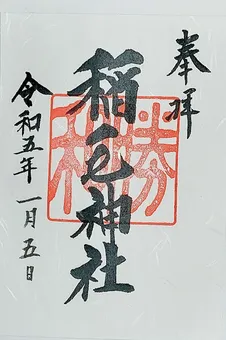 奉拝
稲毛神社
勝
令和五年一月五日